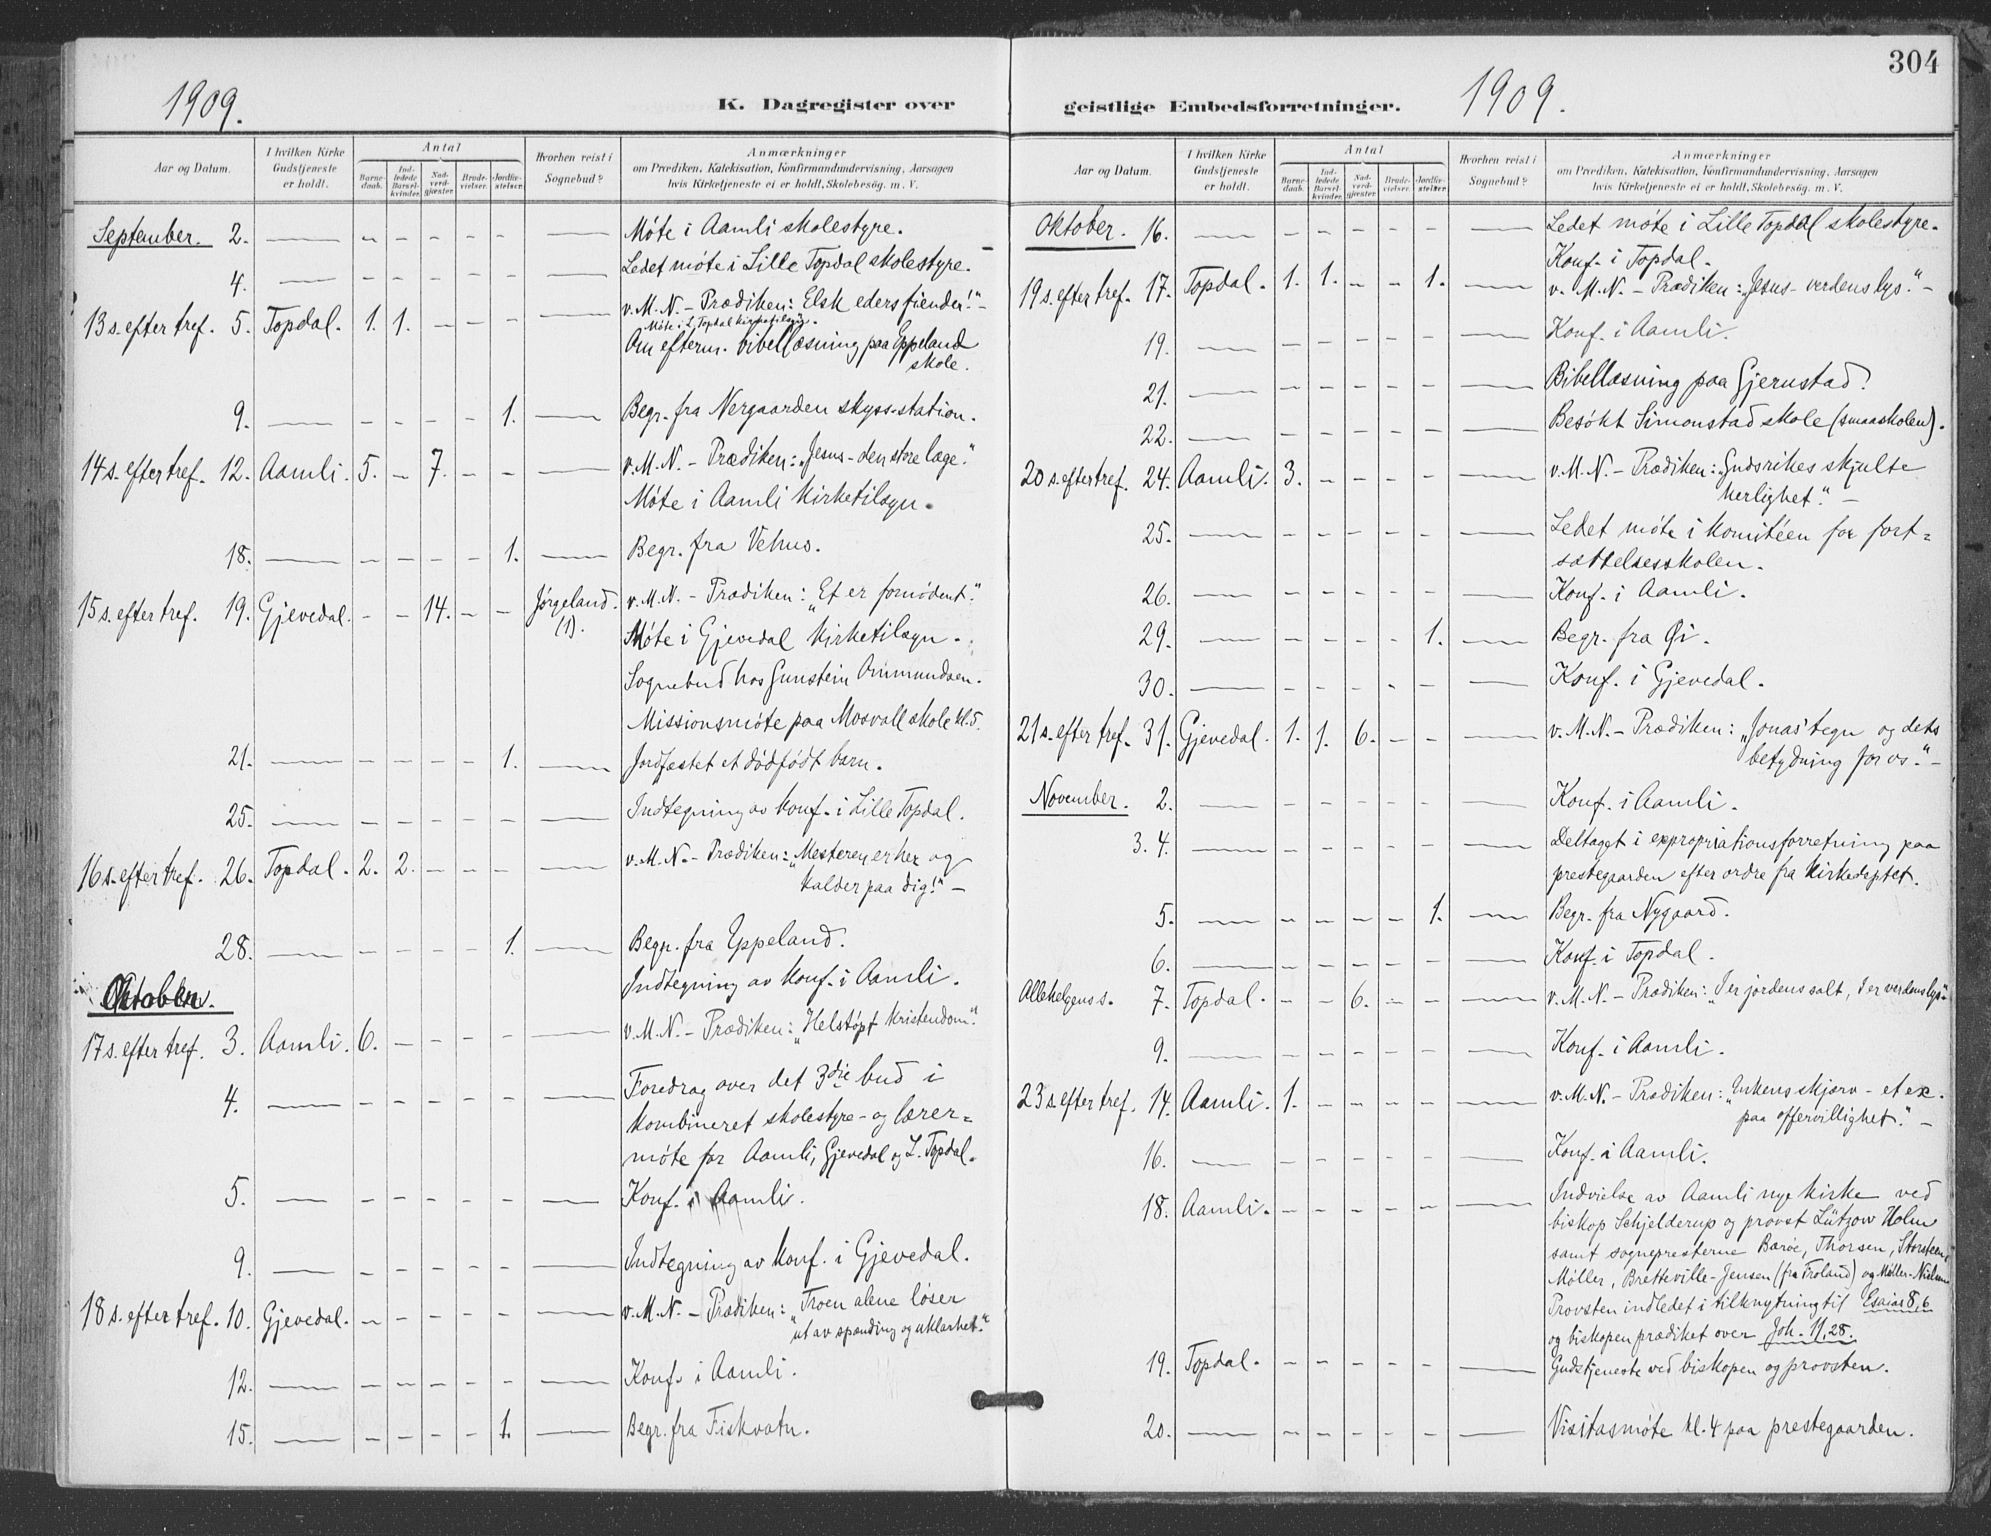 304
1909. K. Dagregister over
Aar og Datum. I hvilken Kirke Gudstjeneste er holdt. Antal Hvorhen reist i Sognebud? Anmærkninger
Barnedaab. Indledede Barselkvinder. Nadverdgjester. Brudevielser. Jordfæstelser.
om Prædiken, Katekisation, Konfirmandundervisning, Aarsagen
hvis Kirketjeneste ei er holdt, Skolebesøg. m. V.
September. 2. — – – – – – — Møte i Aamli skolestyre.
4. — – – – – – — Ledet møte i Lille Topdal skolestyre.
13 s. efter tref. 5. Topdal. 1. 1. – – – — v. M. N. – Prædiken: Elsk eders fiender!" –
Møte i L. Topdal kirketilsyn.
Om efterm. bibellæsning paa Eppeland
skole.
9. — – – – – 1. — Begr. fra Nergaarden skyss-station.
14 s. efter tref. 12. Aamli. 5. – 7. – – — v. M. N. – Prædiken: „Jesus – den store læge."
Møte i Aamli kirketilsyn.
18. — – – – – 1. — Begr. fra Vehus.
15 s. efter tref. 19. Gjevedal. – – 14. – – Jørgeland. (1). v. M. N. – Prædiken: „Et er fornødent."
Møte i Gjevedal kirketilsyn.
Sognebud hos Gunstein Ommundsen.
Missionsmøte paa Mosvall skole kl. 5.
21. — – – – – 1. — Jordfæstet et dødfødt barn.
25. — – – – – – — Indtegning av konf. i Lille Topdal.
16 s. efter tref. 26. Topdal. 2. 2. – – – — v. M. N. – Prædiken: „Mesteren er her og
kalder paa dig!" –
28. — – – – – 1. — Begr. fra Eppeland.
Indtegning av konf. i Aamli.
Oktober.
17 s. efter tref. 3. Aamli. 6. – – – – — v. M. N. – Prædiken: „Helstøpt kristendom."
4. — – – – – – — Foredrag over det 3die bud i
kombineret skolestyre- og lærer=
møte for Aamli, Gjevedal og L. Topdal.
5. — – – – – – — Konf. i Aamli.
9. — – – – – – — Indtegning av konf. i Gjevedal.
18 s. efter tref. 10. Gjevedal. – – – – – — v. M. N. – Prædiken: „Troen alene løser
ut av spænding og uklarhet."
12. — – – – – – — Konf. i Aamli.
15. — – – – – 1. — Begr. fra Fiskvatn.
geistlige Embedsforretninger. 1909.
Aar og Datum. I hvilken Kirke Gudstjeneste er holdt. Antal Hvorhen reist i Sognebud? Anmærkninger
Barnedaab. Indledede Barselkvinder. Nadverdgjester. Brudevielser. Jordfæstelser.
om Prædiken, Katekisation, Konfirmandundervisning, Aarsagen
hvis Kirketjeneste ei er holdt, Skolebesøg. m. V.
Oktober. 16. — – – – – – — Ledet møte i Lille Topdal skolestyre.
Konf. i Topdal.
19 s. efter tref. 17. Topdal. 1. 1. – – 1. — v. M. N. – Prædiken: „Jesus – verdens lys." –
19. — – – – – – — Konf. i Aamli.
21. — – – – – – — Bibellæsning paa Gjernstad.
22. — – – – – – — Besøkt Simonstad skole (smaaskolen).
20 s. efter tref. 24. Aamli. 3. – – – – — v. M. N. – Prædiken: „Gudsrikes skjulte
herlighet." –
25. — – – – – – — Ledet møte i komitéen for fort=
sættelsesskolen.
26. — – – – – – — Konf. i Aamli.
29. — – – – – 1. — Begr. fra Øi.
30. — – – – – – — Konf. i Gjevedal.
21 s. efter tref. 31. Gjevedal. 1. 1. 6. – – — v. M. N. – Prædiken: „Jonas' tegn og dets
betydning for os." –
November. 2. — – – – – – — Konf. i Aamli.
3. 4. — – – – – – — Deltaget i expropriationsforretning paa
prestegaarden efter ordre fra Kirkedeptet.
5. — – – – – 1. — Begr. fra Nygaard.
6. — – – – – – — Konf. i Topdal.
Allehelgens s. 7. Topdal. – – 6. – – — v. M. N. – Prædiken: „I er jordens salt, I er verdens lys".
9. — – – – – – — Konf. i Aamli.
23 s. efter tref. 14. Aamli. 1. – – – – — v. M. N. – Prædiken: „Enkens skjærv – et ex.
paa offervillighet." –
16. — – – – – – — Konf. i Aamli.
18. Aamli. – – – – – — Indvielse av Aamli nye kirke ved
biskop Schjelderup og provst Lützow Holm
samt sogneprestene Barøe, Thorsen, Storsteen,
Møller, Bretteville-Jensen (fra Froland) og Møller-Nielsen
Provsten indledet i tilknytning til Esaias 8,6
og biskopen prædiket over Joh. 11,28.
19. Topdal. – – – – – — Gudstjeneste ved biskopen og provsten.
20. — – – – – – — Visitasmøte kl. 4 paa prestegaarden.